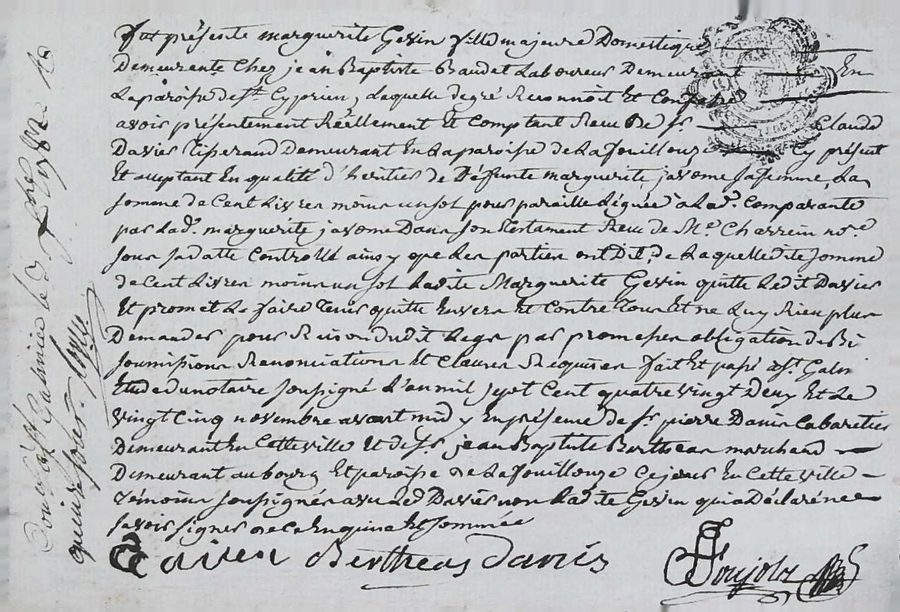 Fut présente marguerite Gevin fille majeure Domestique
Demeurante Chez jean Baptiste Baudet Laboureur Demeurant En
La paroisse de st. Cyprien, Laquelle de gré Reconnoit Et Confesse
avoir présentement Réellement Et Comptant Receu De sr. Claude
Davier Tisserand demeurant En La paroisse de La fouillouze Cy présent
Et acceptant En qualité d'heritier de Deffunte marguerite javome sa femme, La
somme de Cent Livres moins un sol pour pareille Léguée a Lad. Comparante
par Lad. marguerite javome Dans son Testament Receu de Me. Charrein nore.
sous sa datte Controllé ainsy que Les parties ont Dit, de Laquelle dite somme
de Cent Livres moins un sol Ladite Marguerite Gevin quitte Ledit Davier
Et promet Le faire Tenir quitte Envers Et Contre Tous Et ne Luy Rien plus
Demander pour Raison dudit Legs par promesses obligation de Bi
soumissions Renonciations Et Clauses Requises fait Et passé a st. Galm
Etude du notaire soussigné L'an mil sept Cent quatre vingt Deux Et Le
vingt Cinq novembre avant midy En présence de sr. pierre Danis Cabaretier
Demeurant En Cette ville Et de sr. jean Baptiste Bertheas marchand
Demeurant au bourg Et paroisse de La fouillouze Ce jour En Cette ville
Témoins soussignés avec Led Davier non Ladite Gevin qui a Déclaré ne
savoir signer de Ce Enquise Et sommée
Davier Bertheas danis
Soujols
Con. a st. Galmier Le
quinze sols.